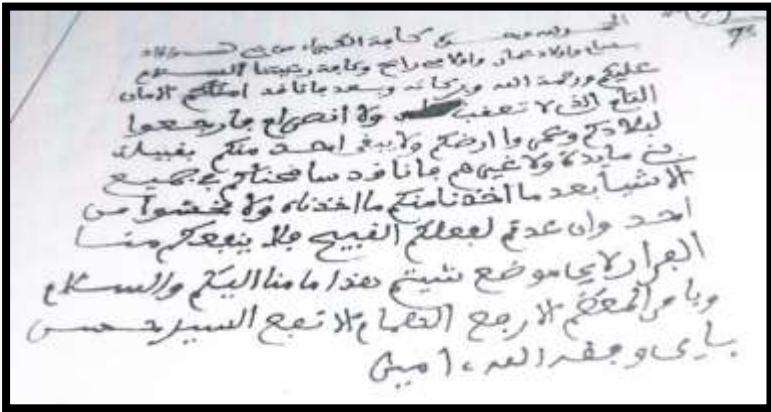 الحمد لله وحده كافة الكبراء من بني اولاد
واولاد واولاد رابح وكافة رعيتنا السلام
عليكم ورحمة الله وبركاته وبعد فاننا قد امناكم الامان
التام الذي لا تعقب ولا انصرام فارجعوا
لبلادكم وعمروا ارضكم ولا يبقى احد منكم بقبيلة
بني ولا غيرهم فاننا قد سامحناكم في جميع
الاشيا بعد ما اخذنا منكم ما اخذناه ولا تخشوا من
احد وان عدتم لفعلكم القبيح فلا ينفعكم منا
الفرار لاي موضع شيتم هذا ما منا اليكم والسلام
وبامر المعظم الارفع الهمام الانفع السيد حسن
باي وفقه الله ، امين